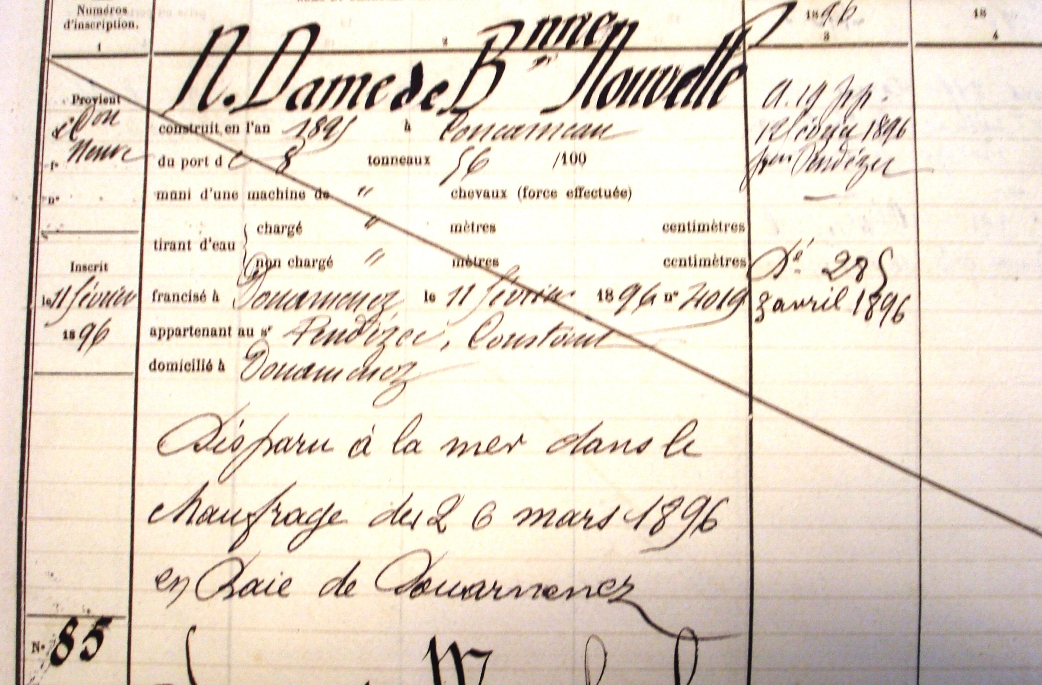 Numéros
d'inscription.
1
2
1896
3
18
4
N. Dame de Bnne Nouvelle
Provient
d'Don
Neuve
construit en l'an 1895 à Concarneau
du port de 8 tonneaux 56 /100
n°
mani d'une machine de " chevaux (force effectuée)
tirant d'eau
chargé " mètres centimètres
non chargé " mètres centimètres
Inscrit
le 11 février
1896
francisé à Douarnenez le 11 février 1896 n° 4019
appartenant au sr Pendizec, Constant
domicilié à Douarnenez
Disparu à la mer dans le
Naufrage du 26 mars 1896
en Baie de Douarnenez
12 février 1896
Pendézec
Dé 285
3 avril 1896
N° 85